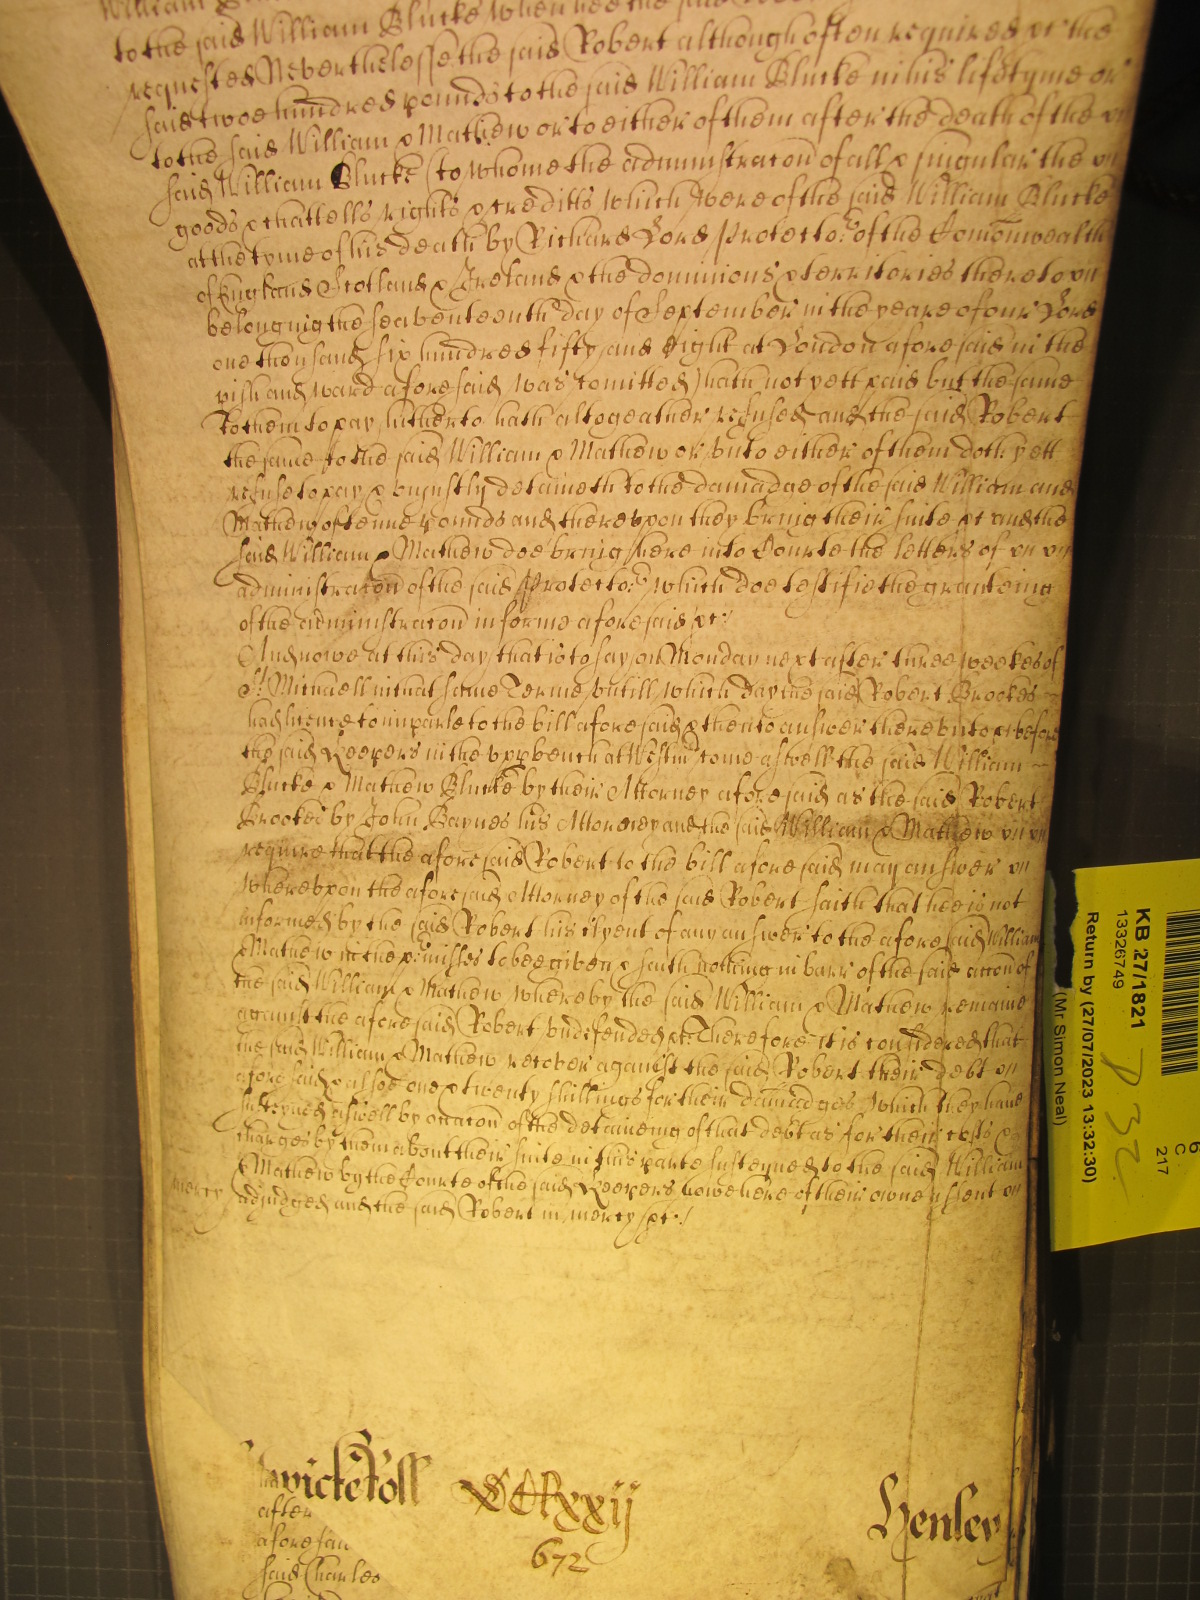 to the said William Blucke when hee the said
requested Neverthelesse the said Robert although often required &c the
said twoe hundred pounds to the said William Blucke in his lifetyme or
to the said William & Mathew or to either of them after the death of the
said William Blucke (to whome the administracon of all & singular the
goods & chattells rights & creditts which were of the said William Blucke
at the tyme of his death by Richard Lord Protector of the Comonwealth
of England Scotland & Ireland & the dominions & territories thereto
belonging the seaventeenth day of September in the yeare of our Lord
one thousand six hundred fifty and eight at London aforesaid in the
rish and ward aforesaid was comitted) hath not yett paid but the same
to them to pay hitherto hath altogeather refused and the said Robert
the same to the said William & Mathew or unto either of them doth yett
refuse to pay & uniustly deteineth to the damadge of the said William and
Mathew of tenne pounds and thereupon they bring their suite &c and the
said William & Mathew doe bring here into Courte the letters of
administracon of the said Protector which doe testifie the granteing
of the administracon in forme aforesaid &c
And nowe at this day that is to say on Monday next after three weekes of
St Michaell in that same Terme untill which day the said Robert Brookes
had licence to imparle to the bill aforesaid & then to answer thereunto &c before
the said Keepers in the upper bench at Westm come aswell the said William
Blucke & Mathew Blucke by their Attorney aforesaid as the said Robert
Brookes by John Baynes his Attorney and the said William & Mathew
require that the aforesaid Robert to the bill aforesaid may answer
whereupon the aforesaid Attorney of the said Robert saith that hee is not
informed by the said Robert his clyent of any answer to the aforesaid William
& Mathew in the premisses to bee given & saith nothing in barr of the said accon of
the said William & Mathew whereby the said William & Mathew remaine
against the aforesaid Robert undefended &c Therefore it is considered that
the said William & Mathew recover against the said Robert their debt
aforesaid & alsoe one & twenty shillings for their damadges which they have
susteyned aswell by occacon of the deteineing of that debt as for their costs &
charges by them about their suite in this parte susteyned to the said William
& Mathew by the Courte of the said Keepers nowe here of their owne assent
adjudged and the said Robert in mercy &c
mercy
wick Roll
CCCCCCLxxij
Henley
672
after
aforesaid
said Charles
KB 27/1821
13326749
Return by (27/07/2023 13:32:30)
(Mr Simon Neal)
P 32
6
C
217